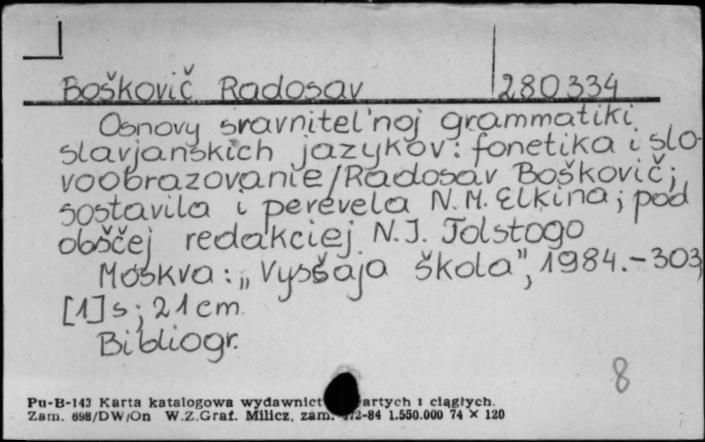 Boškovič Radosav 280334
Osnovy sravnitel'noj grammatiki
slavjanskich jazykov: fonetika i slo-
voobrazovanie/Radosav Boškovič;
sostavila i perevela N.M. Elkina; pod
obščej redakciej N.J. Tolstogo
Moskva: „Vysšaja škola”, 1984.-303,
[1]s; 21cm.
Bibliogr.
8
Pu-B-143 Karta katalogowa wydawnict artych i ciągłych.
Zam. 698/DW/On W.Z.Graf. Milicz, zam. 2-84 1.550.000 74 × 120